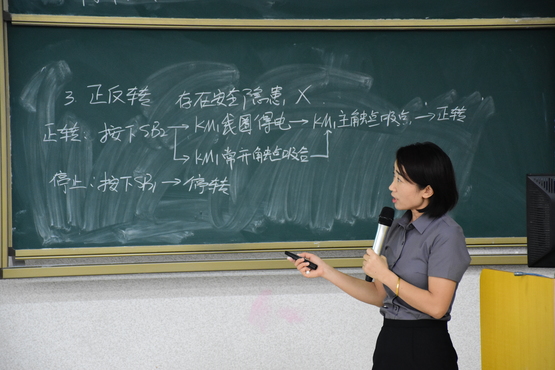 3. 正反转 存在安全隐患, ×
正转: 按下SB2 → KM1线圈得电 → KM1主触点吸合 → 正转
→ KM1常开触点吸合
停止: 按下SB1 → 停转